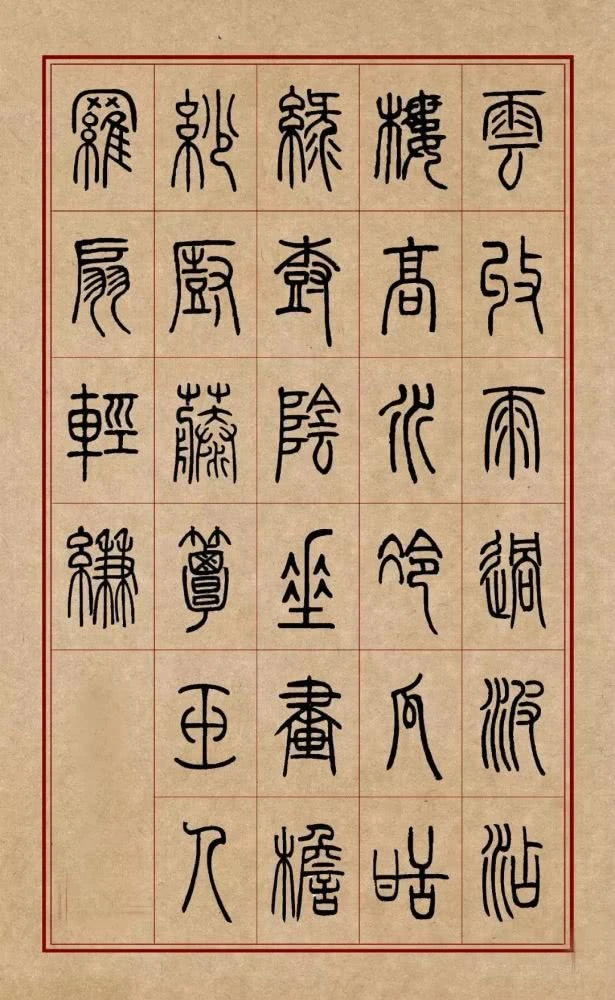 雲收雨過波添
樓高水冷瓜甜
綠樹陰垂畫檐
紗廚藤簟玉人
羅扇輕縑